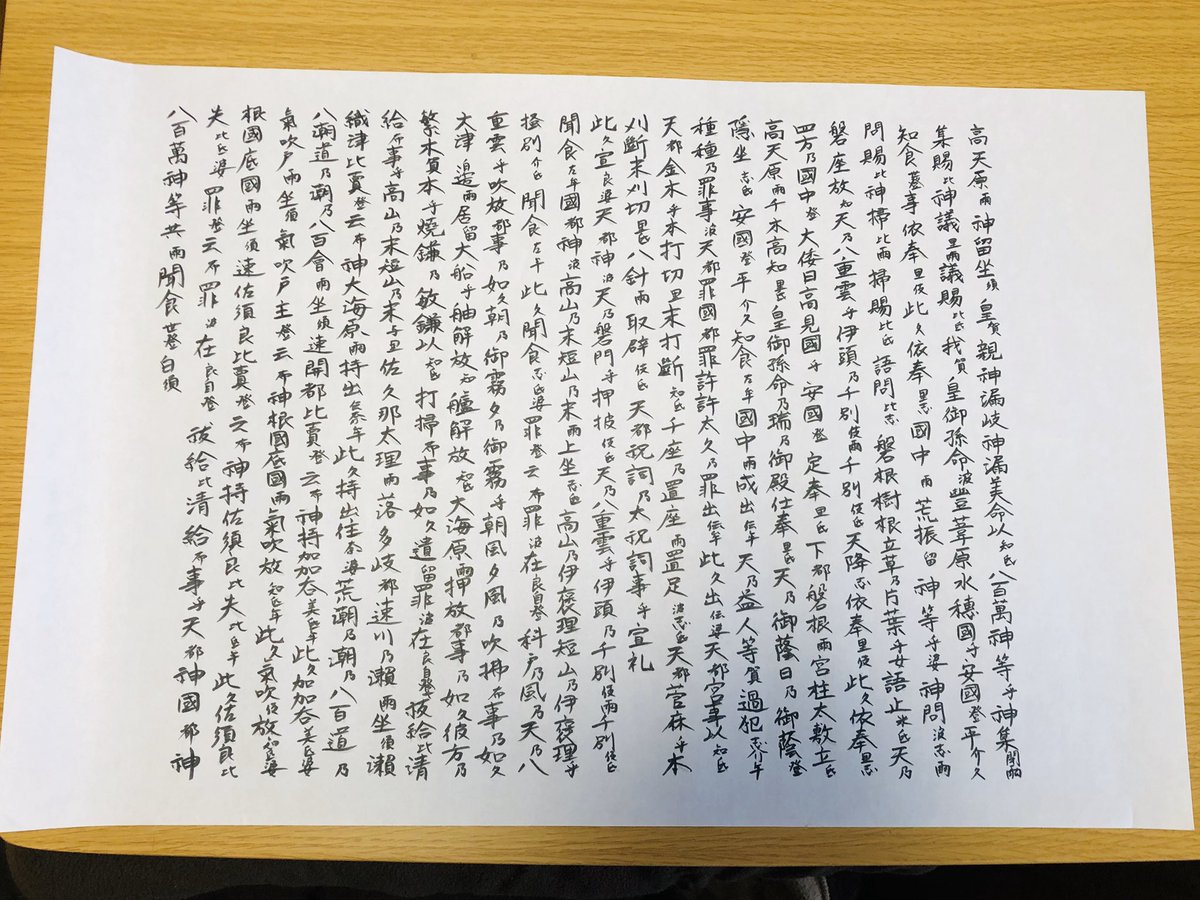 高天原爾神留坐須皇賀親神漏岐神漏美命以知氐八百萬神等乎神集閉爾
集賜比神議里爾議賜比氐我賀皇御孫命波豐葦原水穗國乎安國登平介久
知食蔂事依奉里伎此久依奉里志國中爾荒振留神等乎婆神問波志爾
問賜比神掃比爾掃賜比氐語問比志磐根樹根立草乃片葉乎女語止米氐天乃
磐座放知天乃八重雲乎伊頭乃千別伎爾千別伎氐天降志依奉里伎此久依奉里志
四方乃國中登大倭日高見國乎安國登定奉里氐下都磐根爾宮柱太敷立氐
高天原爾千木高知里氐皇御孫命乃瑞乃御殿仕奉里氐天乃御蔭日乃御蔭登
隱坐志氐安國登平介久知食左牟國中爾成出伝牟天乃益人等賀過犯志介牟
種種乃罪事波天都罪國都罪許許太久乃罪出伝牟此久出伝婆天都宮事以知氐
天都金木乎本打切里末打斷知氐千座乃置座爾置足波志氐天都菅麻乎本
刈斷末刈切里氐八針爾取辟伎氐天都祝詞乃太祝詞事乎宣礼
此久宣良婆天都神波天乃磐門乎押披伎氐天乃八重雲乎伊頭乃千別伎爾千別伎氐
聞食左牟國都神波高山乃末短山乃末爾上坐志氐高山乃伊褒理短山乃伊褒理乎
掻別介氐聞食左牟此久聞食志氐婆罪登云布罪波在良自登科戸乃風乃天乃八
重雲乎吹放都事乃如久朝乃御霧夕乃御霧乎朝風夕風乃吹拂布事乃如久
大津邊爾居留大船乎舳解放知艫解放知氐大海原爾押放都事乃如久彼方乃
繁木賀本乎燒鎌乃敏鎌以知氐打掃布事乃如久遺留罪波在良自登祓給比清
給布事乎高山乃末短山乃末与里佐久那太理爾落多岐都速川乃瀬爾坐須瀬
織津比賣登云布神大海原爾持出伝奈牟此久持出往奈婆荒潮乃潮乃八百道乃
八潮道乃潮乃八百會爾坐須速開都比賣登云布神持加加吞美氐牟此久加加吞美氐婆
氣吹戸爾坐須氣吹戸主登云布神根國底國爾氣吹放知氐牟此久氣吹伎放知氐婆
根國底國爾坐須速佐須良比賣登云布神持佐須良比失比氐牟此久佐須良比
失比氐婆罪登云布罪波在良自登祓給比清給布事乎天都神國都神
八百萬神等共爾聞食蔂白須